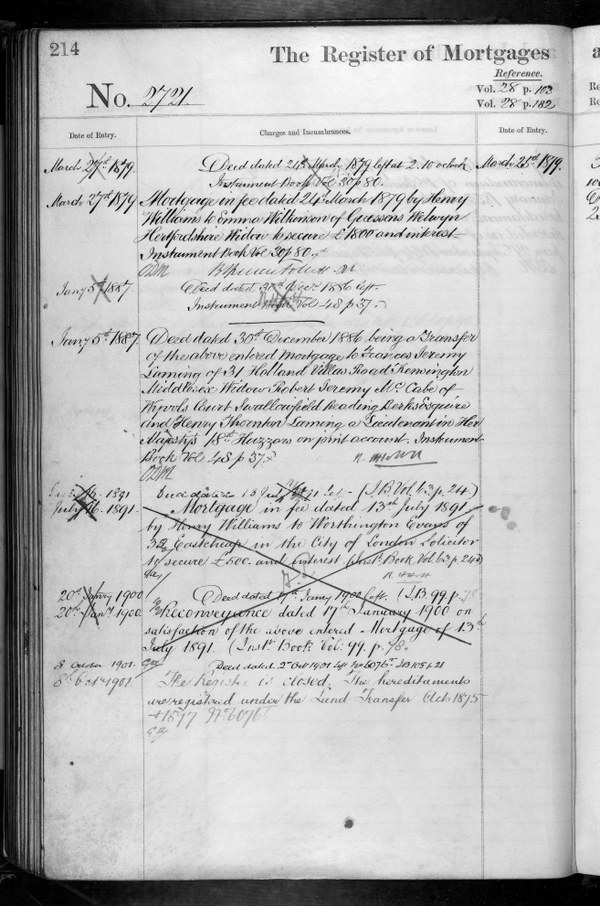 214
The Register of Mortgages
Reference.
No. 2721.
Vol. 28 p. 103
Vol. 28 p. 182
Date of Entry.
Charges and Incumbrances.
Date of Entry.
March 27th 1879.
Deed dated 24th March 1879 left at 2.10 oclock
March 25th 1879.
Instrument Book Vol 30 p 80.
March 27th 1879
Mortgage in fee dated 24th March 1879 by Henry
Williams to Emma Wilkinson of Guessens Welwyn
Hertfordshire Widow to secure £1800 and interest
Instrument Book Vol 30 p 80.
Jany 5th 1887.
Deed dated 30th Decr 1886 left.
Instrument Vol 48 p 37.
Jany 5th 1887.
Deed dated 30th December 1886 being a Transfer
of the above entered Mortgage to Frances Jeremy
Laming of 31 Holland Villas Road Kensington
Middlesex Widow Robert Jeremy Mc Cabe of
Wyvols Court Swallowfield Reading Berks Esquire
and Henry Thornton Laming a Lieutenant in Her
Majesty's 18th Huzzars on joint account. Instrument
Book Vol 48 p 37.
1891
Deed dated 13 July 91 left (I.B. Vol. 63 p. 24.)
July 16. 1891.
Mortgage in fee dated 13th July 1891
by Henry Williams to Worthington Evans of
32 Eastcheap in the City of London Solicitor
to secure £500. and interest (Inst. Book Vol. 63 p. 24)
20th Janry 1900
Deed dated 17th Janry 1900 left. (I.B. 99 p. 78
20th Janry 1900
Reconveyance dated 17th January 1900 on
satisfaction of the above entered Mortgage of 13th
July 1891. (Instt Book Vol. 99. p. 78.
8 October 1901.
Deed dated 2nd Oct 1901 left No 6076 IB 105 p 21
8th Octr 1901.
The Register is closed. The hereditaments
are registered under the Land Transfer Acts 1875
& 1897 No 6076